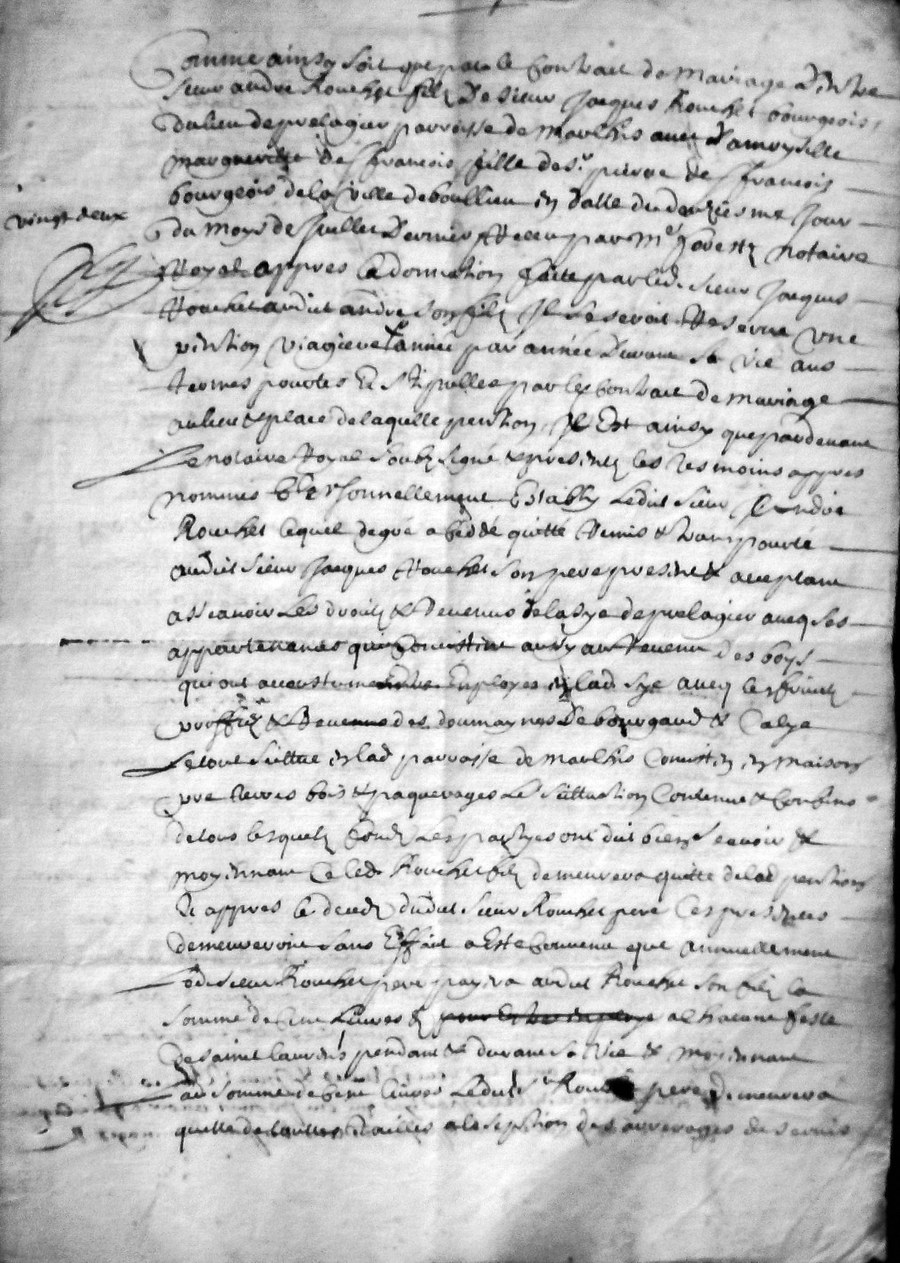 Comme ainsy soit que par le Contrait de Mariage d'Entre
sieur andré Rouchet filz de sieur Jacques Rouchet bourgeois
du lieu de prelagier parroisse de Marlhis avec damoyselle
Marguerite de ffrancois fille de sr pierre de ffrancois
bourgeois de la ville de boullieu en datte du douziesme jour
vingt deux
du moys de Juillet dernier Receu par Me notaire
Royal appres la donnation faite par led. sieur Jacques
Rouchet audit andré son filz Il se seroit Reservé une
pention viagiere annee par année durant sa vie aus
termes pourtes Et stipulles par led Contrait de mariage
au lieu & place de laquelle pention, Il Est ainsy que par devant
Le notaire Royal soubzsigné & presentz les tesmoins appres
nommés Personnellement Estably Ledit sieur André
Rouchet lequel de gré a ceddé quitté Remis & transpourté
audit sieur Jacques Rouchet son pere present & acceptant
asscavoir Les droitz & Revenus de la sye de prelagier avecq ses
appartenances qui Concistent au Revenu des boys
qui ont accoustume Employes en lad sye avecq les fruictz
proffictz & Revenus des doumaynes de bourgaud &
Le tout scittué en lad parroisse de marlhis Concistz en maisons
pre terres bois & paquerages Leur scittuation Contenue & Confins
de tous lesquelz fondz Les partyes ont dit bien scavoir &
moyennant Ce led. Rouchet filz demeurera quitte de lad pention
Et appres le decedz dudit sieur Rouchet pere Ces presentes
demeureront sans Effait a Esté Convenu que annuellement
Led. sieur Rouchet pere payera audit Rouchet son filz la
somme de Livres a chacune feste
de saint laurens pendant & durant sa vie & moyennant
lad somme de Livres Ledit sr Rouchet pere demeurera
quitte de touttes tailles a la seption des arrerages de servis